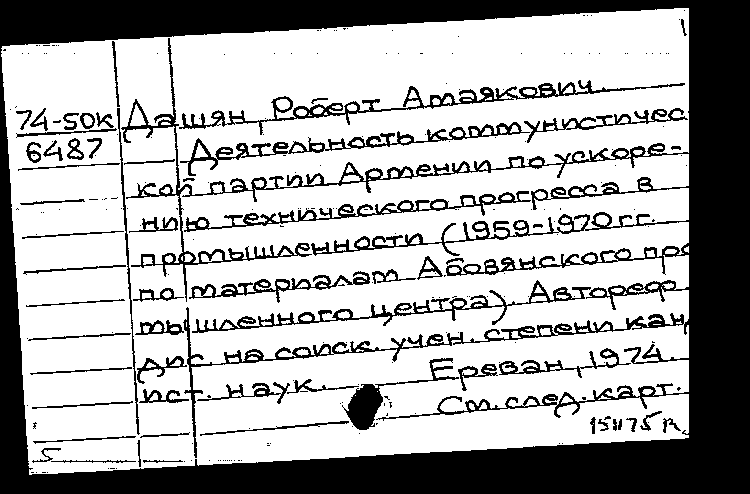 74-50к Дашян, Роберт Атаякович.
6487 Деятельность коммунистичес
кой партии Армении по ускоре-
нию технического прогресса в
промышленности (1959-1970гг.
по материалам Абовянского про
мышленного центра). Автореф.
дис. на соиск. учен. степени кан
ист. наук. Ереван, 1974.
См. след. карт.
5